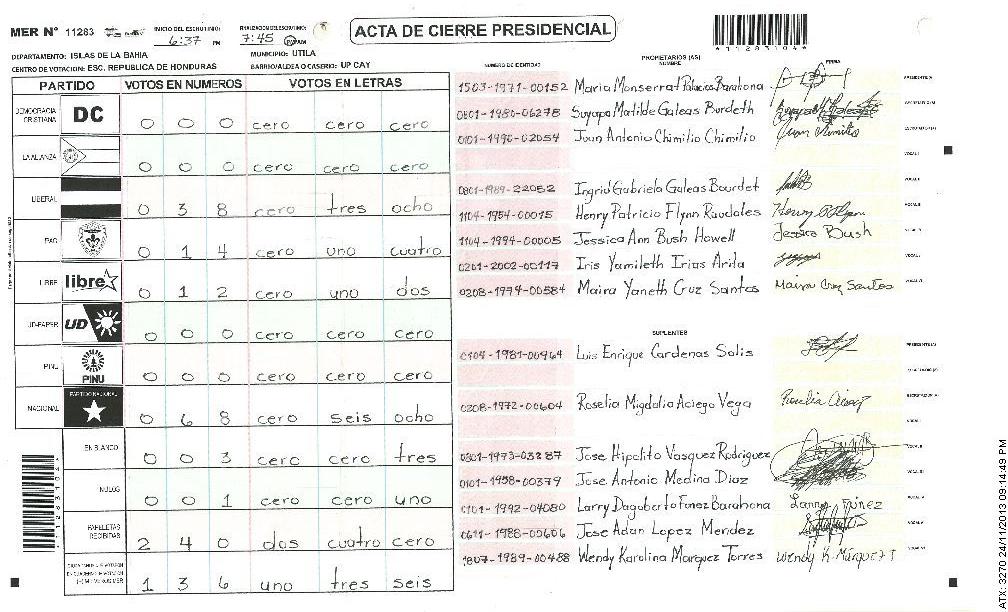 MER N° 11283
INICIO DEL ESCRUTINIO: 6:37 PM
FINALIZACION DEL ESCRUTINIO: 7:45 PM
ACTA DE CIERRE PRESIDENCIAL
11283104
DEPARTAMENTO: ISLAS DE LA BAHIA
MUNICIPIO: UTILA
CENTRO DE VOTACION: ESC. REPUBLICA DE HONDURAS
BARRIO/ALDEA O CASERIO: UP CAY
PARTIDO VOTOS EN NUMEROS VOTOS EN LETRAS
DEMOCRACIA CRISTIANA DC 0 0 0 cero cero cero
LA ALIANZA 0 0 0 cero cero cero
LIBERAL 0 3 8 cero tres ocho
PAC 0 1 4 cero uno cuatro
LIBRE libre 0 1 2 cero uno dos
UD-FAPER UD 0 0 0 cero cero cero
PINU PINU 0 0 0 cero cero cero
NACIONAL PARTIDO NACIONAL 0 6 8 cero seis ocho
EN BLANCO 0 0 3 cero cero tres
NULOS 0 0 1 cero cero uno
PAPELETAS RECIBIDAS 2 4 0 dos cuatro cero
1 3 6 uno tres seis
NUMERO DE IDENTIDAD PROPIETARIOS (AS) NOMBRE FIRMA
1503-1971-00152 Maria Monserrat Palacios Barahona PRESIDENTE(A)
0801-1980-06278 Suyapa Matilde Galeas Burdeth SECRETARIO(A)
0101-1990-02054 Juan Antonio Chimilio Chimilio Juan Chimilio ESCRUTADOR(A)
VOCAL I
0801-1989-22052 Ingrid Gabriela Galeas Bourdet VOCAL II
1104-1954-00015 Henry Patricio Flynn Raudales Henry Flynn
1104-1994-00005 Jessica Ann Bush Howell Jessica Bush
0201-2002-00117 Iris Yamileth Irias Arita
0208-1974-00584 Maira Yaneth Cruz Santos Maira Cruz Santos
SUPLENTES
0104-1981-00964 Luis Enrique Cardenas Solis PRESIDENTE(A)
0208-1972-00604 Roselia Migdalia Aciego Vega
0801-1973-03287 Jose Hipolito Vasquez Rodriguez
0101-1958-00379 Jose Antonio Medina Diaz
0101-1992-04080 Larry Dagoberto Funez Barahona Larry Funez
0611-1988-00606 Jose Adan Lopez Mendez
1807-1989-00488 Wendy Karolina Marquez Torres Wendy K. Márquez T
ATX: 3270 24/11/2013 09:14:49 PM